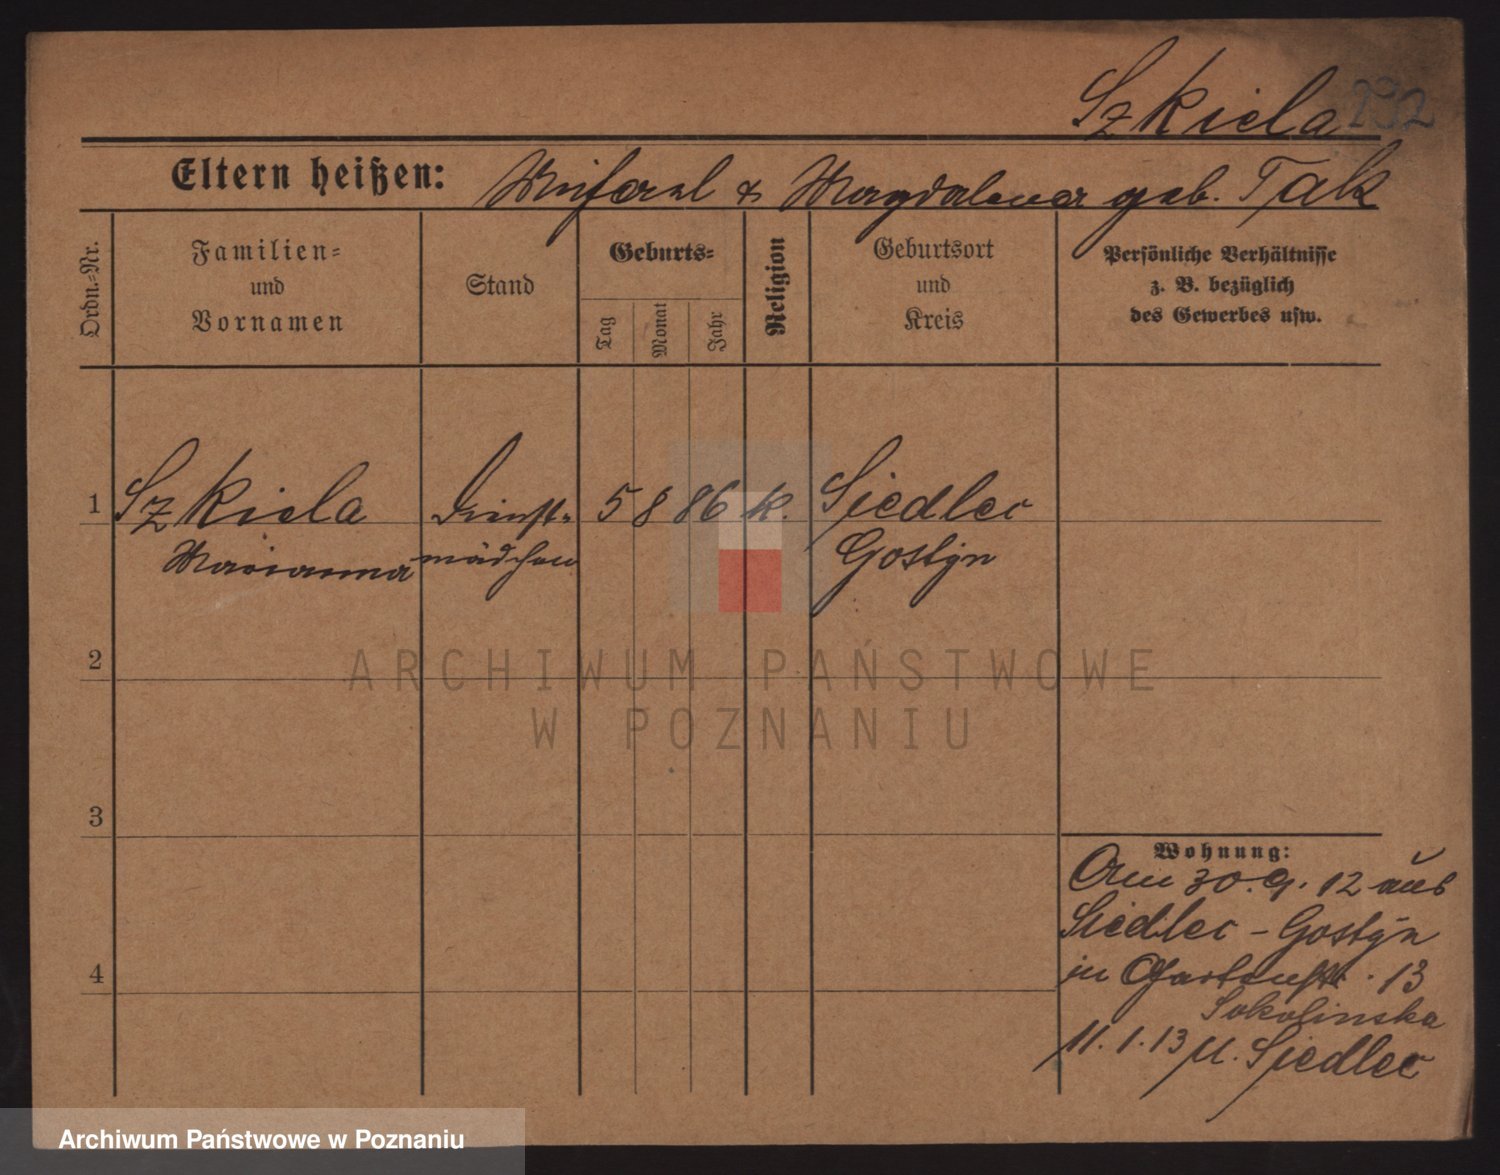 Szkiela 232
Eltern heißen: Michael & Magdalena geb. Tak
Ordn.-Nr.
Familien-
und
Vornamen
Stand
Geburts-
Tag
Monat
Jahr
Religion
Geburtsort
und
Kreis
Persönliche Verhältnisse
z. B. bezüglich
des Gewerbes usw.
1 Szkiela Dienst- 5 8 86 k. Siedlec
Marianna mädchen Gostyn
2
ARCHIWUM PAŃSTWOWE
W POZNANIU
3
Wohnung:
Am 30.9.12 aus
Siedlec - Gostyn
in Gartenstr. 13
4
11.1.13 n. Siedlec
Archiwum Państwowe w Poznaniu